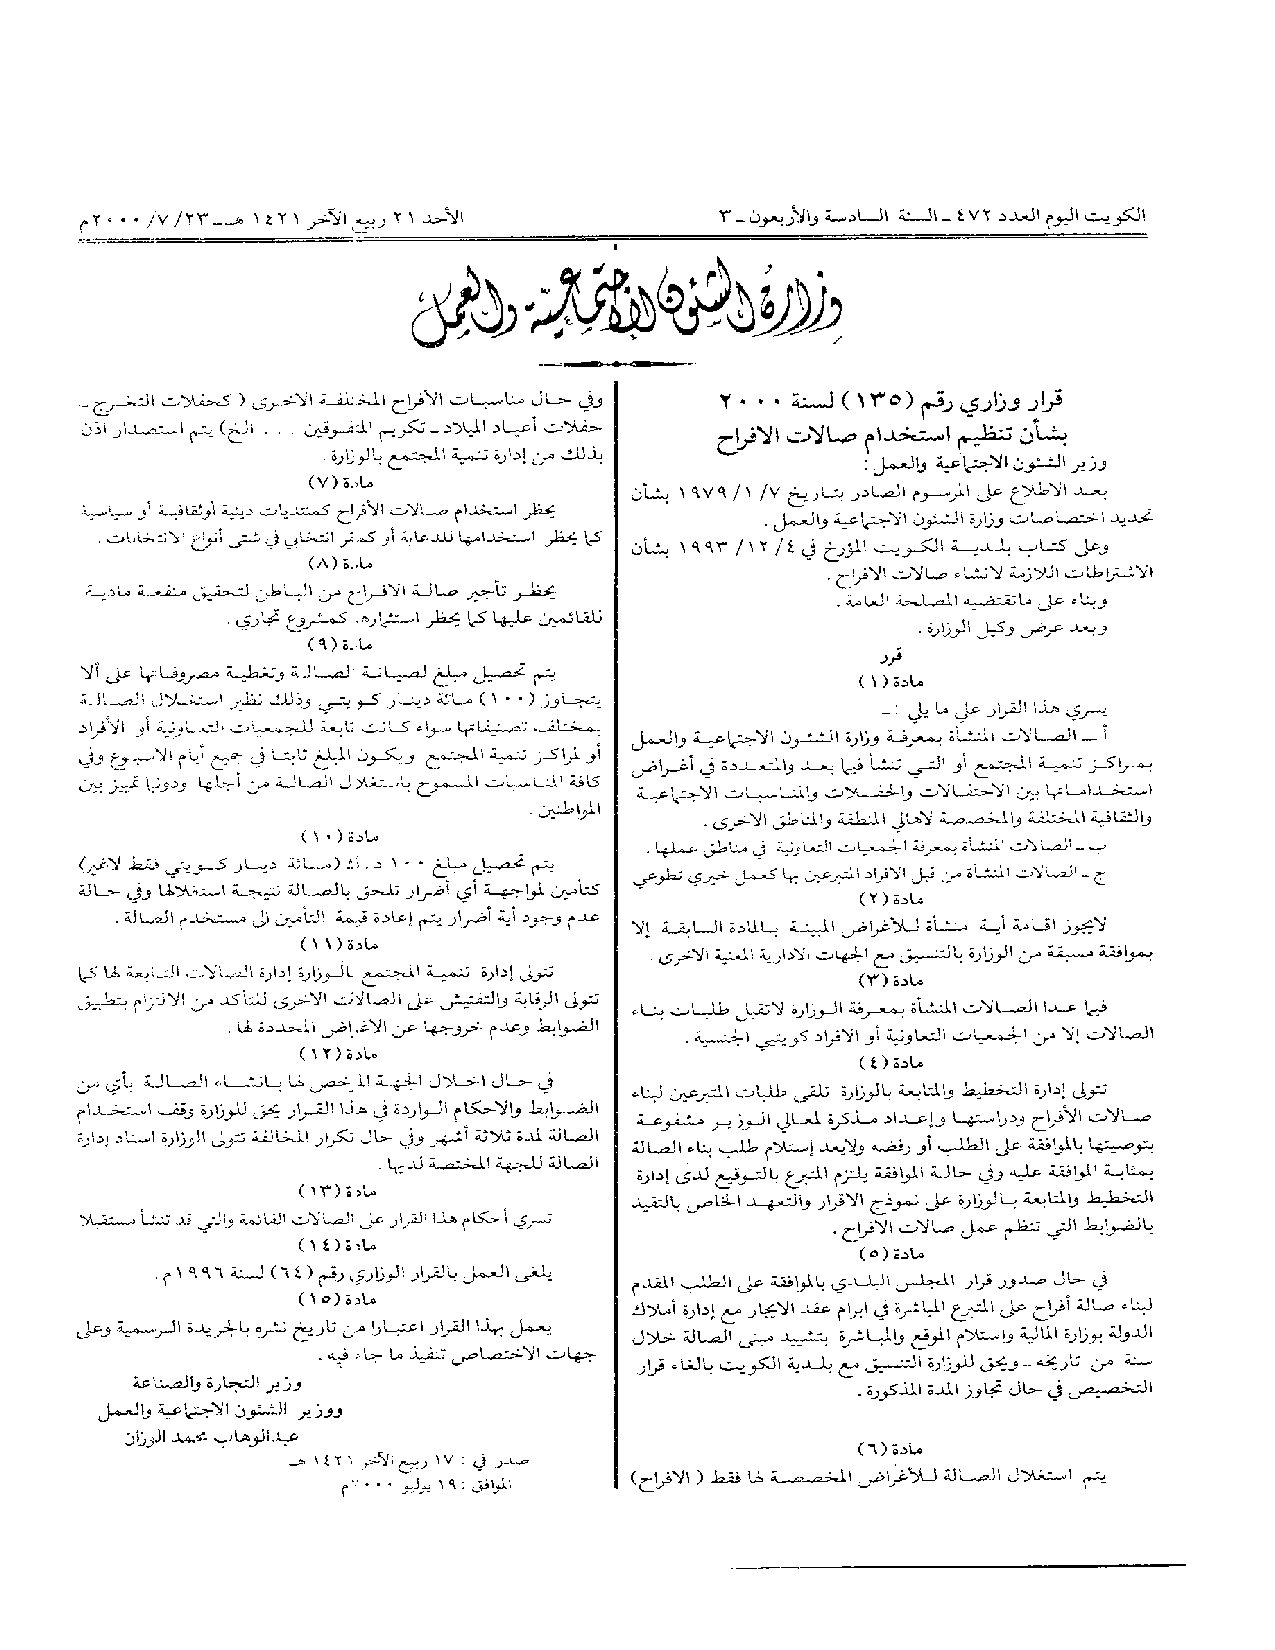 الكويت اليوم العدد ٤٧٢ - السنة السادسة والأربعون - ٣
الأحد ٢١ ربيع الآخر ١٤٢١ هـ - ٢٣/ ٧/ ٢٠٠٠م
وزارة الشئون الاجتماعية والعمل
قرار وزاري رقم (١٣٥) لسنة ٢٠٠٠
بشأن تنظيم استخدام صالات الافراح
وزير الشئون الاجتماعية والعمل :
بعد الاطلاع على المرسوم الصادر بتاريخ ٧/ ١/ ١٩٧٩ بشأن
تحديد اختصاصات وزارة الشئون الاجتماعية والعمل .
وعلى كتاب بلدية الكويت المؤرخ في ٤/ ١٢/ ١٩٩٣ بشأن
الاشتراطات اللازمة لانشاء صالات الافراح .
وبناء على ماتقتضيه المصلحة العامة .
وبعد عرض وكيل الوزارة .
قرر
مادة (١)
يسري هذا القرار على ما يلي : -
أ - الصالات المنشأة بمعرفة وزارة الشئون الاجتماعية والعمل
بمراكز تنمية المجتمع أو التي تنشأ فيما بعد والمتعددة في أغراض
استخداماتها بين الاحتفالات والحفلات والمناسبات الاجتماعية
والثقافية المختلفة والمخصصة لاهالي المنطقة والمناطق الاخرى .
ب - الصالات المنشأة بمعرفة الجمعيات التعاونية في مناطق عملها .
ج - الصالات المنشأة من قبل الافراد المتبرعين بها كعمل خيري تطوعي
مادة (٢)
لايجوز اقامة أية منشأة للأغراض المبينة بالمادة السابقة إلا
بموافقة مسبقة من الوزارة بالتنسيق مع الجهات الادارية المعنية الاخرى .
مادة (٣)
فيما عدا الصالات المنشأة بمعرفة الوزارة لاتقبل طلبات بناء
الصالات إلا من الجمعيات التعاونية أو الافراد كويتيي الجنسية .
مادة (٤)
تتولى إدارة التخطيط والمتابعة بالوزارة تلقي طلبات المتبرعين لبناء
صالات الأفراح ودراستها وإعداد مذكرة لمعالي الوزير مشفوعة
بتوصيتها بالموافقة على الطلب أو رفضه ولايعد إستلام طلب بناء الصالة
بمثابة الموافقة عليه وفي حالة الموافقة يلتزم المتبرع بالتوقيع لدى إدارة
التخطيط والمتابعة بالوزارة على نموذج الاقرار والتعهد الخاص بالتقيد
بالضوابط التي تنظم عمل صالات الافراح .
مادة (٥)
في حال صدور قرار المجلس البلدي بالموافقة على الطلب المقدم
لبناء صالة أفراح على المتبرع المباشرة في ابرام عقد الايجار مع إدارة أملاك
الدولة بوزارة المالية واستلام الموقع والمباشرة بتشييد مبنى الصالة خلال
سنة من تاريخه - ويحق للوزارة التنسيق مع بلدية الكويت بالغاء قرار
التخصيص في حال تجاوز المدة المذكورة .
مادة (٦)
يتم استغلال الصالة للأغراض المخصصة لها فقط ( الافراح)
وفي حال مناسبات الأفراح المختلفة الاخرى ( كحفلات التخرج -
حفلات أعياد الميلاد - تكريم المتفوقين . . . الخ) يتم استصدار اذن
بذلك من إدارة تنمية المجتمع بالوزارة .
مادة (٧)
يحظر استخدام صالات الأفراح كمنتديات دينية أوثقافية أو سياسية
كما يحظر استخدامها للدعاية أو كمقر انتخابي في شتى أنواع الانتخابات .
مادة (٨)
يحظر تأجير صالة الافراح من الباطن لتحقيق منفعة مادية
للقائمين عليها كما يحظر استثماره كمشروع تجاري .
مادة (٩)
يتم تحصيل مبلغ لصيانة الصالة وتغطية مصروفاتها على ألا
يتجاوز (١٠٠) مائة دينار كويتي وذلك نظير استغلال الصالة
بمختلف تصنيفاتها سواء كانت تابعة للجمعيات التعاونية أو الأفراد
أو لمراكز تنمية المجتمع ويكون المبلغ ثابتا في جميع أيام الاسبوع وفي
كافة المناسبات المسموح باستغلال الصالة من أجلها ودونما تمييز بين
المواطنين .
مادة (١٠)
يتم تحصيل مبلغ ١٠٠ د. ك (مائة دينار كويتي فقط لاغير)
كتأمين لمواجهة أي أضرار تلحق بالصالة نتيجة استغلالها وفي حالة
عدم وجود أية أضرار يتم إعادة قيمة التأمين إلى مستخدم الصالة .
مادة (١١)
تتولى إدارة تنمية المجتمع بالوزارة إدارة الصالات التابعة لها كما
تتولى الرقابة والتفتيش على الصالات الاخرى للتأكد من الالتزام بتطبيق
الضوابط وعدم خروجها عن الاغراض المحددة لها .
مادة (١٢)
في حال اخلال الجهة المرخص لها بانشاء الصالة بأي من
الضوابط والاحكام الواردة في هذا القرار يحق للوزارة وقف استخدام
الصالة لمدة ثلاثة أشهر وفي حال تكرار المخالفة تتولى الوزارة اسناد إدارة
الصالة للجهة المختصة لديها .
مادة (١٣)
تسري أحكام هذا القرار على الصالات القائمة والتي قد تنشأ مستقبلا
مادة (١٤)
يلغى العمل بالقرار الوزاري رقم (٦٤) لسنة ١٩٩٦م .
مادة (١٥)
يعمل بهذا القرار اعتبارا من تاريخ نشره بالجريدة الرسمية وعلى
جهات الاختصاص تنفيذ ما جاء فيه .
وزير التجارة والصناعة
ووزير الشئون الاجتماعية والعمل
عبدالوهاب محمد الوزان
صدر في : ١٧ ربيع الآخر ١٤٢١ هـ
الموافق : ١٩ يوليو ٢٠٠٠م